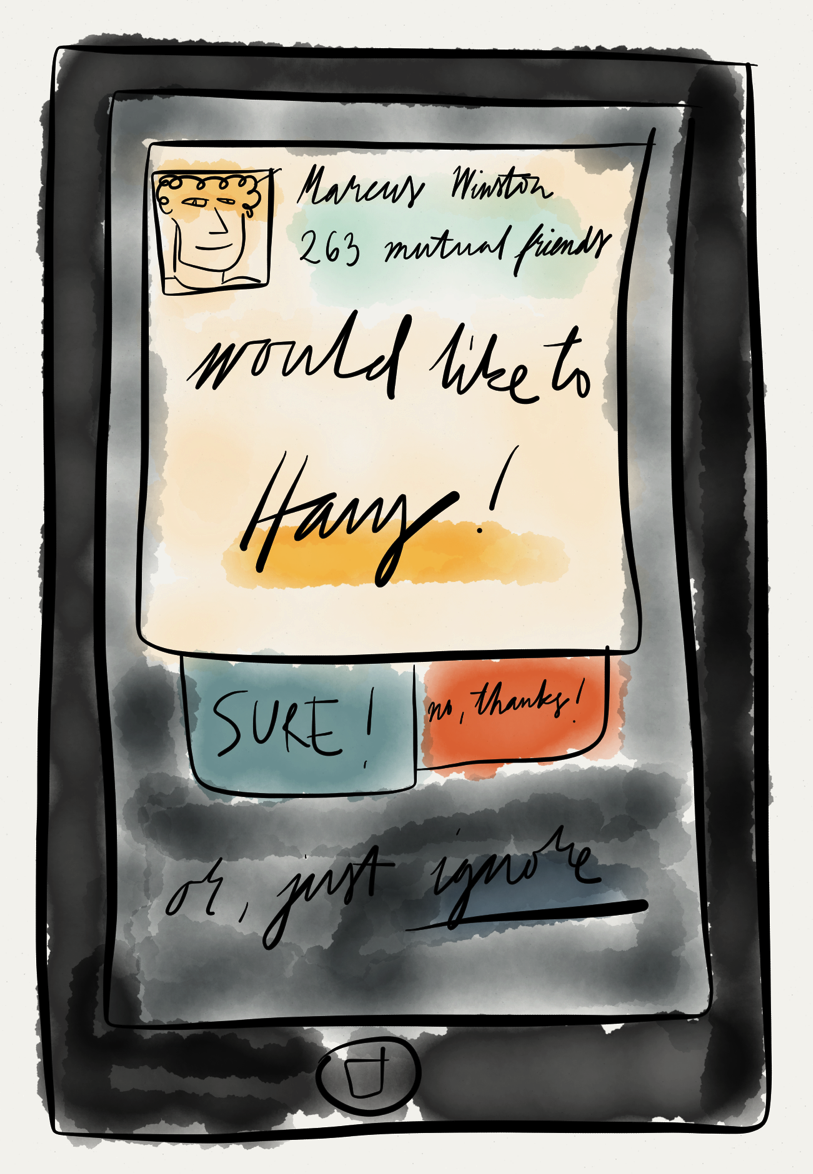 Marcus Winston
263 mutual friends
would like to
Hang!
SURE! no, thanks!
or, just ignore